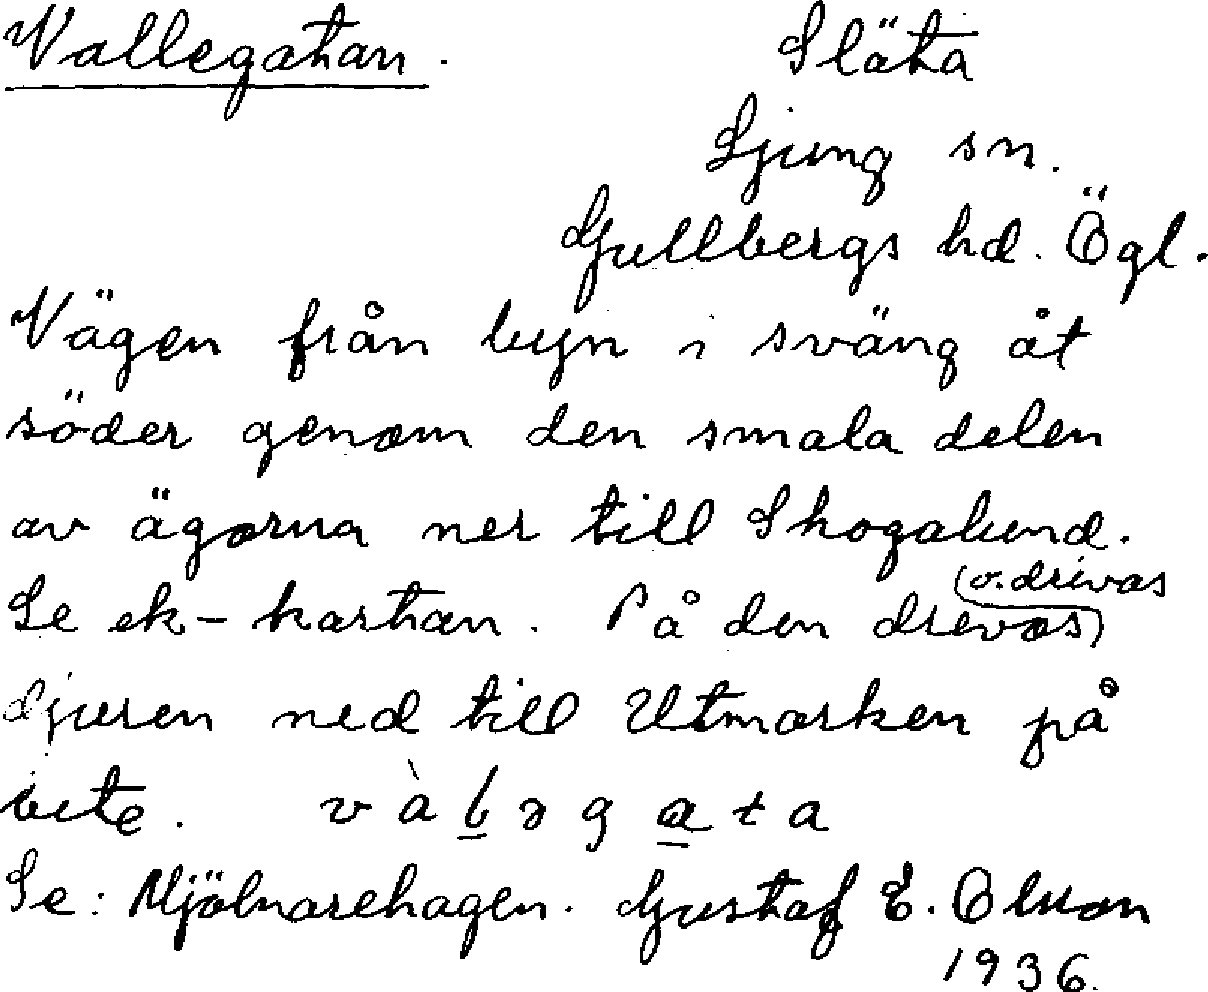 Vallegatan. Släta
Ljung sn.
Gullbergs hd. Ögl.
Vägen från byn i sväng åt
söder genom den smala delen
av ägorna ner till Skogalund.
(o. drivas
Se ek-kartan. På den drevos)
djuren ned till Utmarken på
bete. v à l ə g a t a
Se: Mjölnarehagen. Gustaf E. Olson
1936.